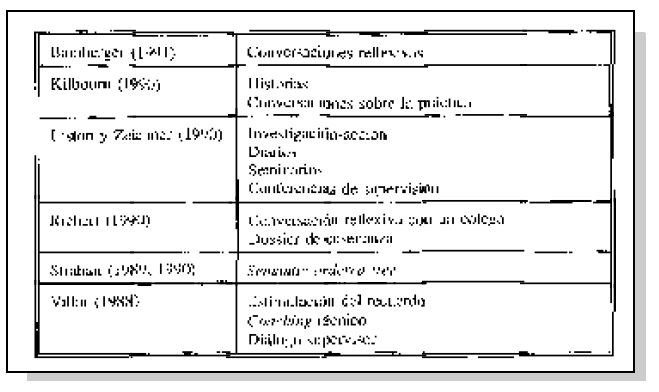 Bamberger (1991) Conversaciones reflexivas
Kilbourn (1990) Historias
Conversaciones sobre la práctica
Liston y Zeichner (1990) Investigación-acción
Diarios
Seminarios
Conferencias de supervisión
Richert (1990) Conversación reflexiva con un colega
Dossier de enseñanza
Strahan (1989, 1990) Semantic ordered tree
Villar (1988) Estimulación del recuerdo
Coaching técnico
Diálogo supervisor